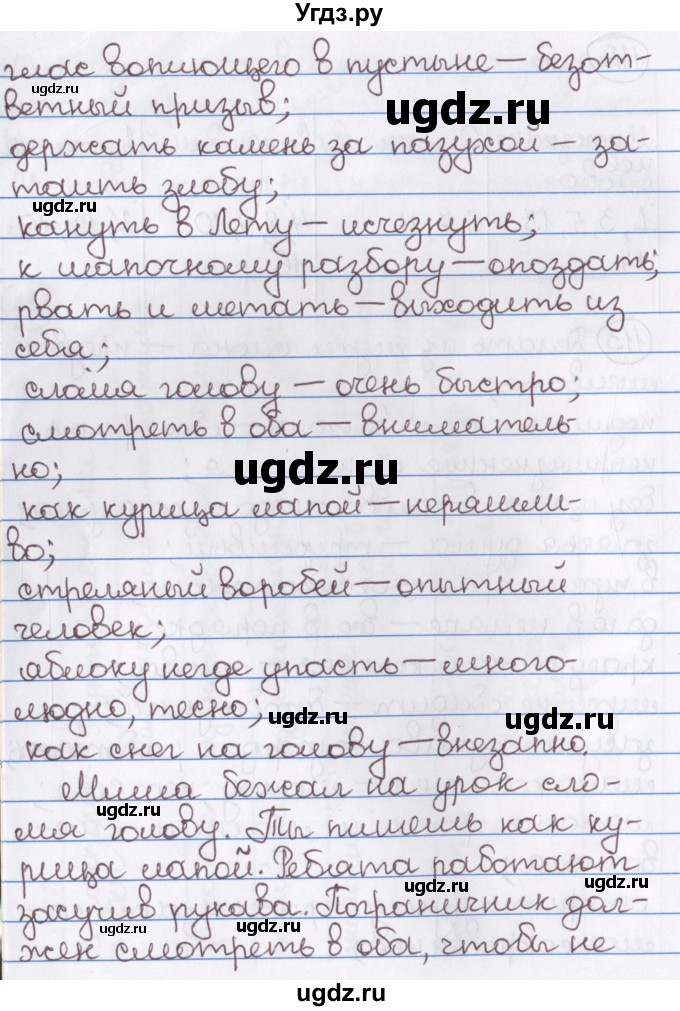 Угдз.ру
глас вопиющего в пустыне — безот-
ugdz.ru
ветный призыв;
ugdz.ru
держать камень за пазухой — за-
таить злобу;
ugdz.ru
кануть в Лету — исчезнуть;
к шапочному разбору — опоздать;
рвать и метать — выходить из
себя;
сломя голову — очень быстро;
смотреть в оба — вниматель-
но;
ugdz.ru
как курица лапой — неряшли-
во;
стреляный воробей — опытный
человек;
яблоку негде упасть — много-
людно, тесно;
ugdz.ru
ugdz.ru
как снег на голову — внезапно.
Миша бежал на урок сло-
ugdz.ru
мя голову. Ты пишешь как ку-
рица лапой. Ребята работают
ugdz.ru
ugdz.ru
засучив рукава. Пограничник дол-
жен смотреть в оба, чтобы не
ugdz.ru